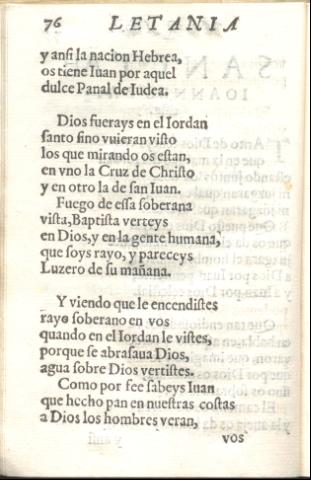 76 LETANIA
y ansi la nacion Hebrea,
os tiene Iuan por aquel
dulce Panal de Iudea.
Dios fuerays en el Iordan
santo sino vuieran visto
los que mirando os estan,
en vno la Cruz de Christo
y en otro la de san Iuan.
Fuego de essa soberana
vista, Baptista verteys
en Dios, y en la gente humana,
que soys rayo, y pareceys
Luzero de su mañana.
Y viendo que le encendistes
rayo soberano en vos
quando en el Iordan le vistes,
porque se abrasaua Dios,
agua sobre Dios vertistes.
Como por fee sabeys Iuan
que hecho pan en nuestras costas
a Dios los hombres veran,
vos